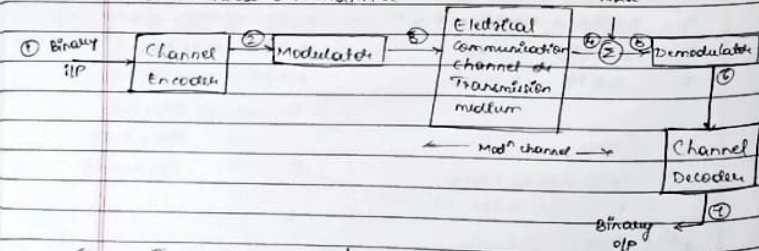 ① Binary
i/p
Channel
Encoder
②
Modulator
③
Electrical
Communication
channel or
Transmission
medium
④
Σ
⑤
Demodulator
⑥
Modⁿ channel
Channel
Decoder
⑦
Binary
o/p